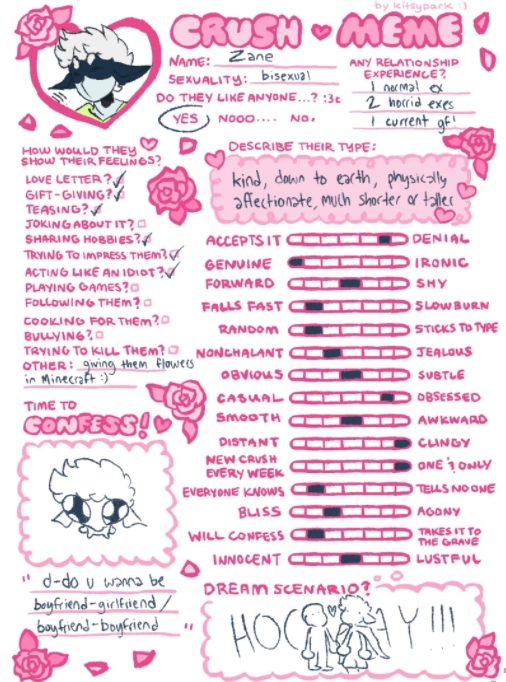 by kitsypark :3
CRUSH MEME
NAME: Zane
SEXUALITY: bisexual
DO THEY LIKE ANYONE...? :3c
YES NOOO.... NO.
ANY RELATIONSHIP
EXPERIENCE?
1 normal ex
2 horrid exes
1 current gf!
HOW WOULD THEY
SHOW THEIR FEELINGS?
LOVE LETTER?
GIFT-GIVING?
TEASING?
JOKING ABOUT IT?
SHARING HOBBIES?
TRYING TO IMPRESS THEM?
ACTING LIKE AN IDIOT?
PLAYING GAMES?
FOLLOWING THEM?
COOKING FOR THEM?
BULLYING?
TRYING TO KILL THEM?
OTHER: giving them flowers
in Minecraft :)
DESCRIBE THEIR TYPE:
kind, down to earth, physically
affectionate, much shorter or taller
ACCEPTS IT DENIAL
GENUINE IRONIC
FORWARD SHY
FALLS FAST SLOWBURN
RANDOM STICKS TO TYPE
NONCHALANT JEALOUS
OBVIOUS SUBTLE
CASUAL OBSESSED
SMOOTH AWKWARD
DISTANT CLINGY
NEW CRUSH
EVERY WEEK ONE & ONLY
EVERYONE KNOWS TELLS NO ONE
BLISS AGONY
WILL CONFESS TAKES IT TO
THE GRAVE
INNOCENT LUSTFUL
TIME TO
CONFESS!
" d-do u wanna be
boyfriend-girlfriend /
boyfriend-boyfriend "
DREAM SCENARIO?
HOORAY!!!